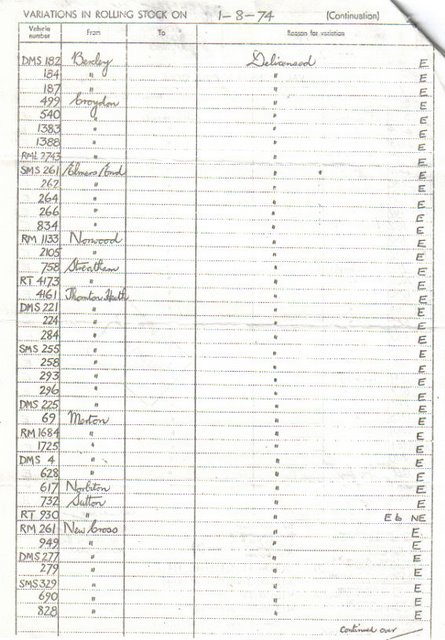 VARIATIONS IN ROLLING STOCK ON 1-8-74 (Continuation)
Vehicle number From To Reason for variation
DMS 182 Bexley Delicensed E
184 " " E
187 " " E
499 Croydon " E
540 " " E
1383 " " E
1388 " " E
RML 2743 " " E
SMS 261 Elmers End " E
262 " " E
264 " " E
266 " " E
834 " " E
RM 1133 Norwood " E
2105 " " E
758 Streatham " E
RT 4173 " " E
4161 Thornton Heath " E
DMS 221 " " E
224 " " E
284 " " E
SMS 255 " " E
258 " " E
293 " " E
296 " " E
DMS 225 " " E
69 Merton " E
RM 1684 " " E
1725 " " E
DMS 4 " " E
628 " " E
617 Norbiton " E
732 Sutton " E
RT 930 " " E to NE
RM 261 New Cross " E
949 " " E
DMS 277 " " E
279 " " E
SMS 329 " " E
690 " " E
828 " " E
Continued over